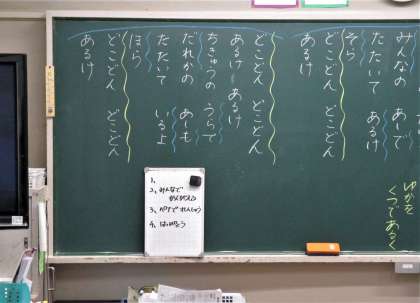 みんなの　あしで
たたいて　あるけ
そら
どこどん　どこどん
あるけ
どこどん　どこどん
あるけ　あるけ
ちきゅうの　うらで
だれかの　あしも
たたいて　いるよ
ほら
どこどん　どこどん
あるけ
ゆかを
くつであるく
1、
2、みんなで
3、ペアでれんしゅう
4、はっぴょう